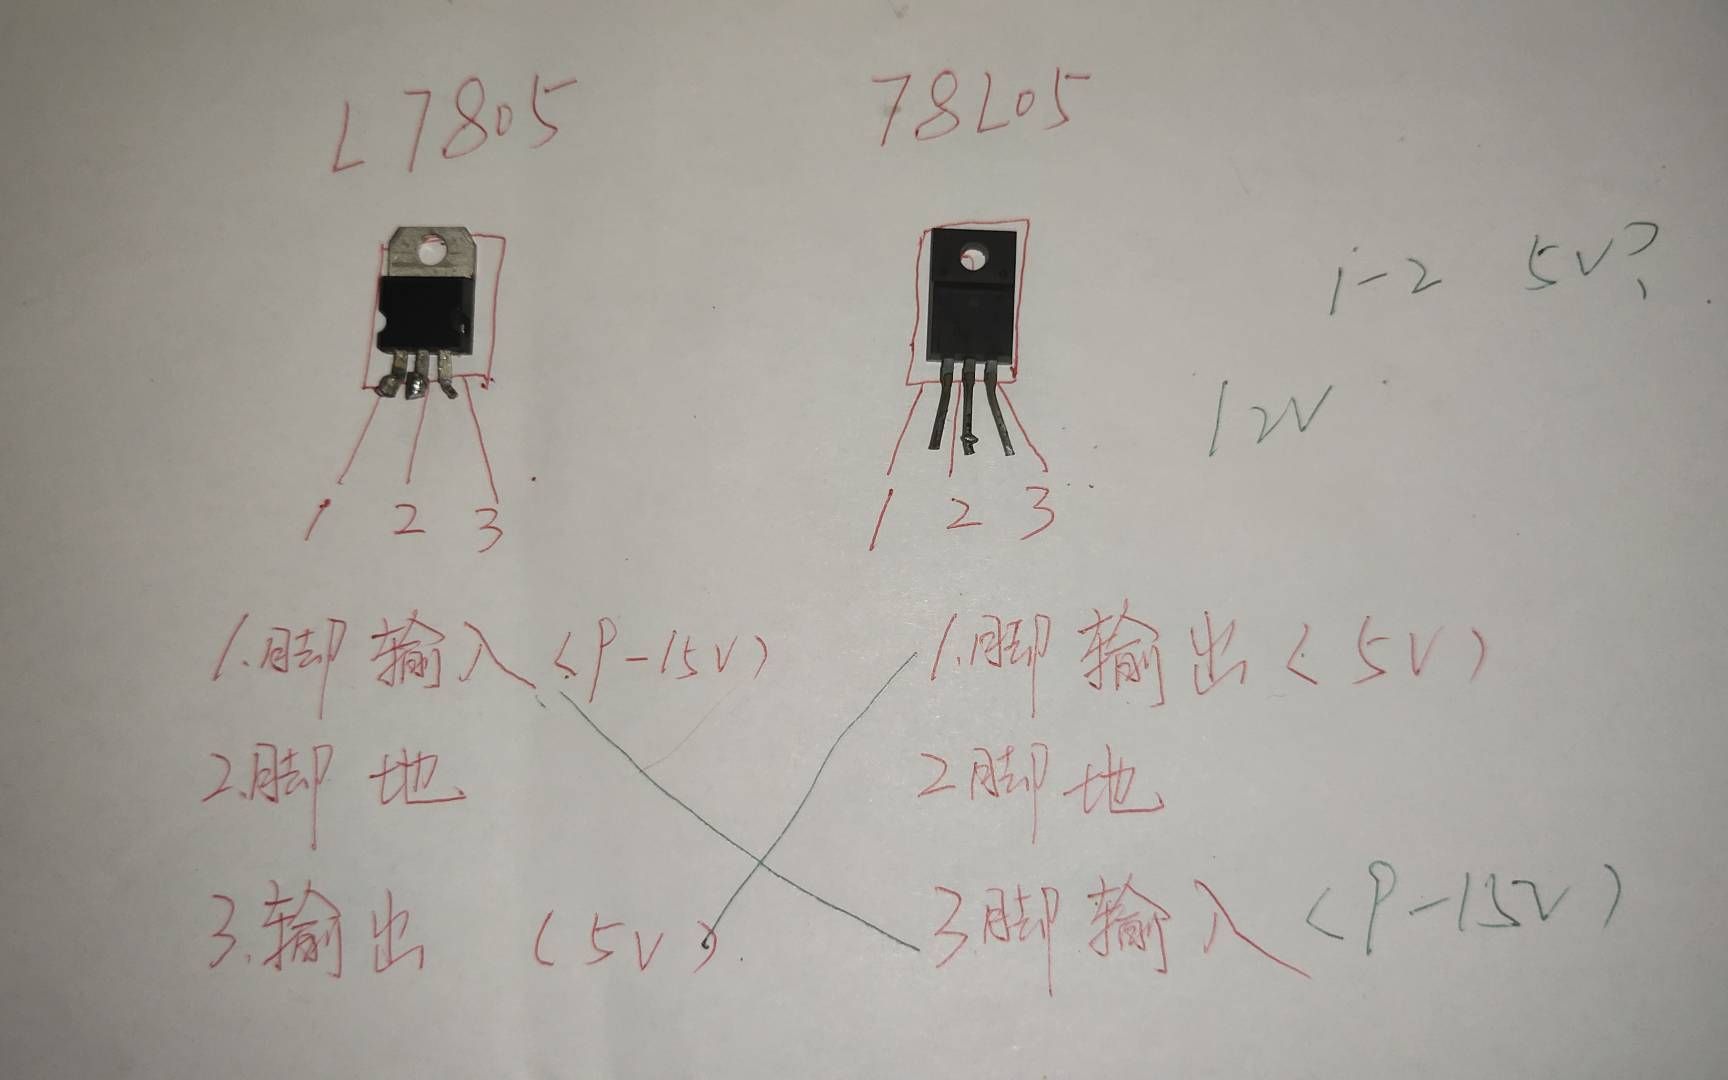 L7805
78L05
1-2 5V?
12V
1 2 3
1 2 3
1.脚输入(9-15V)
2.脚 地
3.输出 (5V)
1.脚输出(5V)
2脚地
3.脚输入(9-15V)